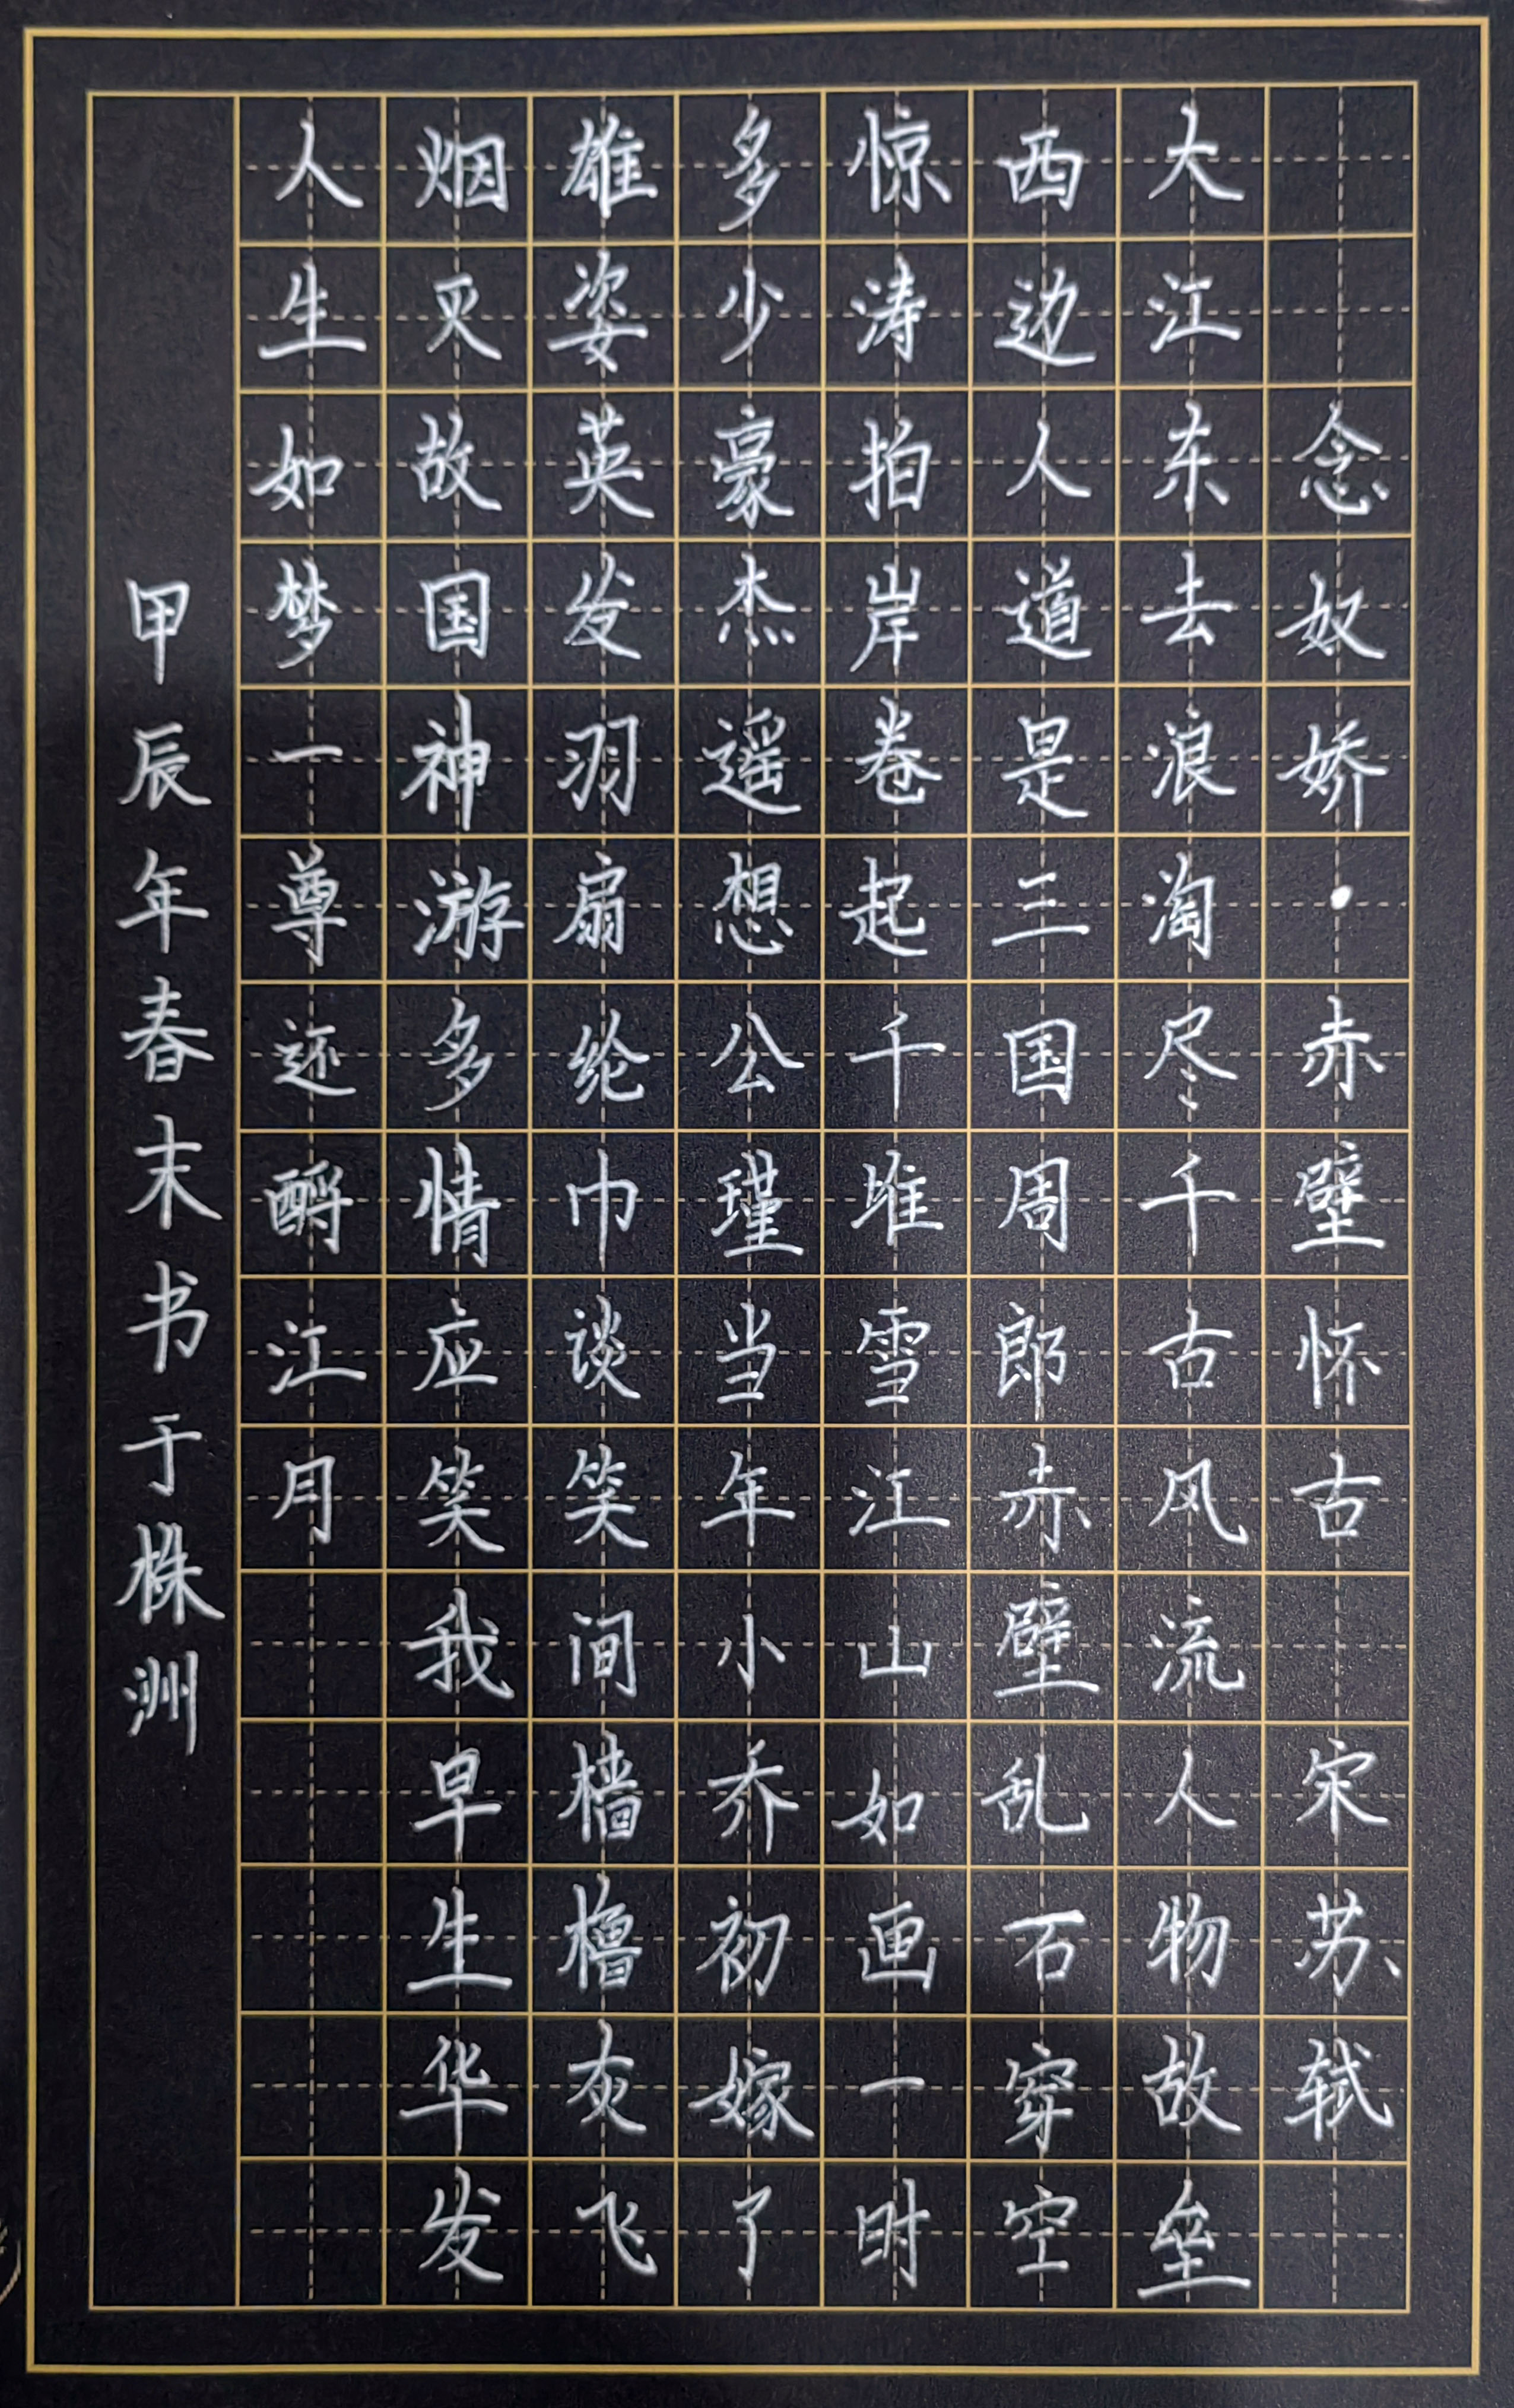 念奴娇·赤壁怀古 宋苏轼
大江东去浪淘尽千古风流人物故垒
西边人道是三国周郎赤壁乱石穿空
惊涛拍岸卷起千堆雪江山如画一时
多少豪杰遥想公瑾当年小乔初嫁了
雄姿英发羽扇纶巾谈笑间樯橹灰飞
烟灭故国神游多情应笑我早生华发
人生如梦一尊还酹江月
甲辰年春末书于株洲